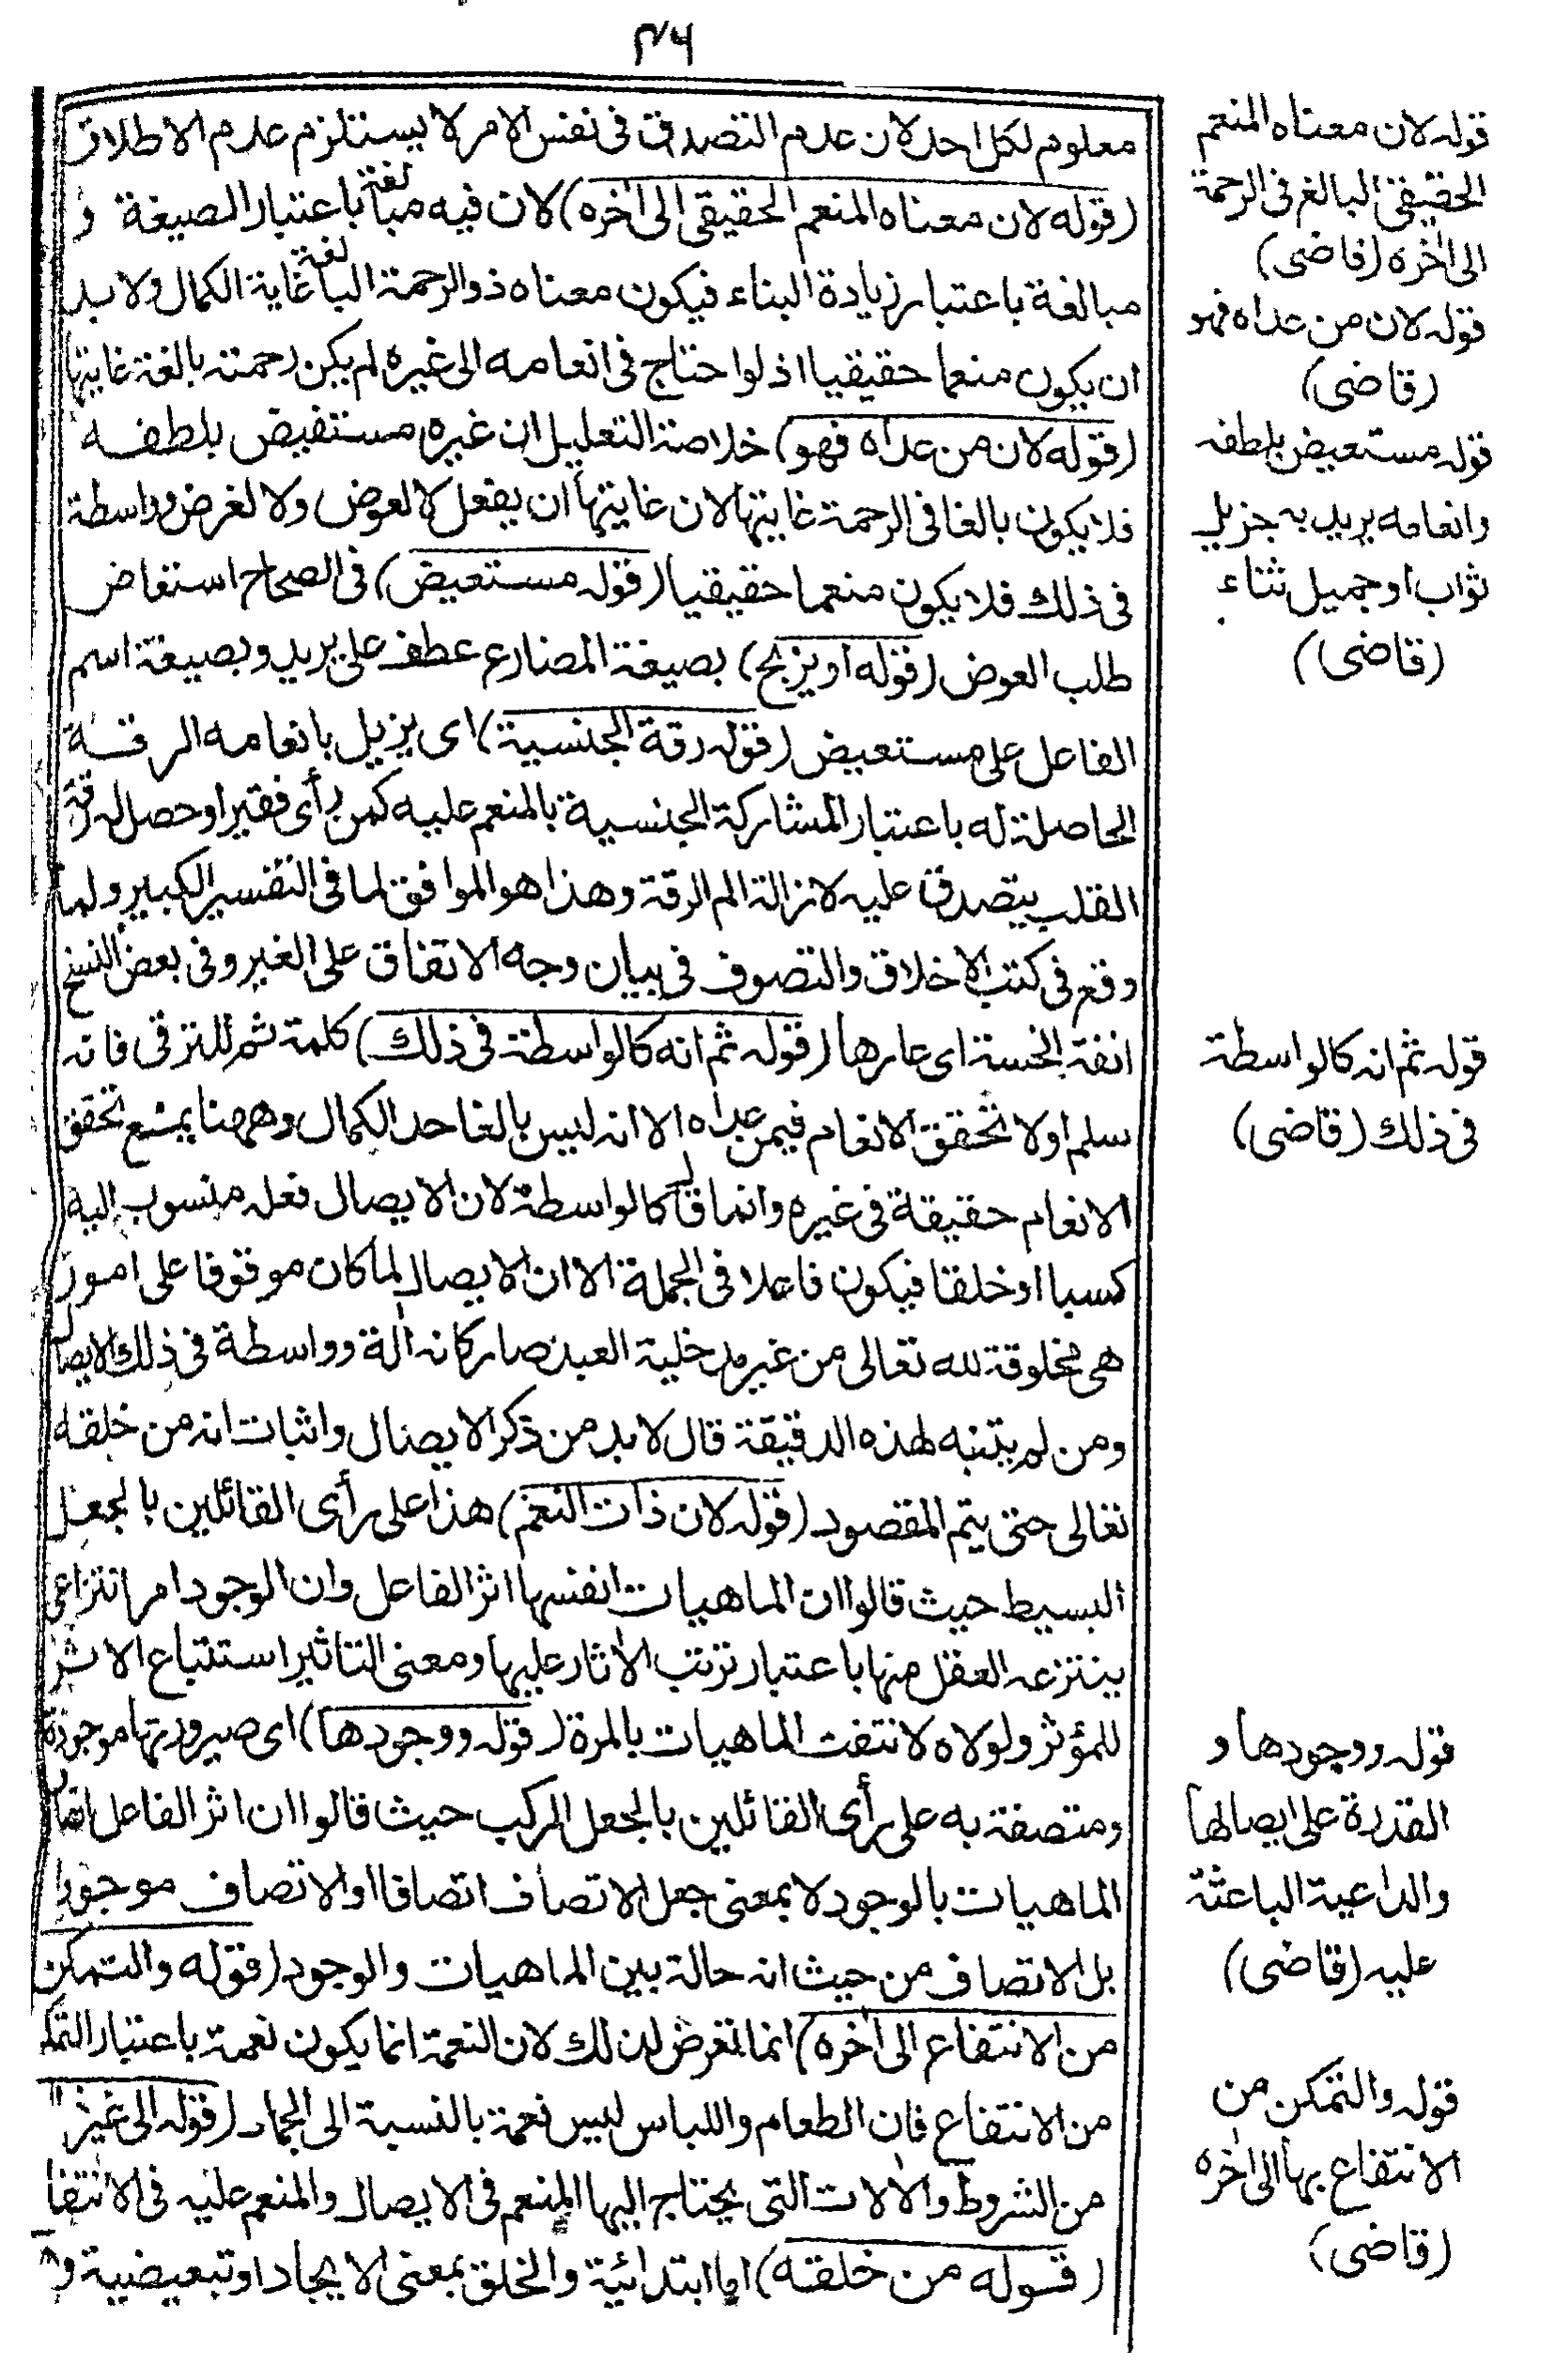 ٤٦
معلوم لكل احد لان عدم التصدق فى نفس الامر لا يستلزم عدم الاطلاق
(قوله لان معناه المنعم الحقيقى الى اخره) لان فيه مبالغة باعتبار الصيغة و
مبالغة باعتبار زيادة البناء فيكون معناه ذو الرحمة البالغة غاية الكمال ولا بد
ان يكون منعما حقيقيا اذ لو احتاج فى انعامه الى غيره لم يكن رحمته بالغة غايتها
(قوله لان من عداه فهو) خلاصة التعليل ان غيره مستفيض بلطفه
فلا يكون بالغا فى الرحمة غايتها لان غايتها ان يفعل لا لعوض ولا لغرض وواسطة
فى ذلك فلا يكون منعما حقيقيا (قوله مستعيض) فى الصحاح استعاض
طلب العوض (قوله او يزيح) بصيغة المضارع عطف على يريد وبصيغة اسم
الفاعل على مستعيض (قوله رقة الجنسية) اى يزيل بانعامه الرقة
الحاصلة له باعتبار المشاركة الجنسية بالمنعم عليه كمن رأى فقيرا وحصل له رقة
القلب يتصدق عليه لازالة الم الرقة وهذا هو الموافق لما فى التفسير الكبير ولما
وقع فى كتب الاخلاق والتصوف فى بيان وجه الانفاق على الغير وفى بعض النسخ
انفة الخسة اى عارها (قوله ثم انه كالواسطة فى ذلك) كلمة ثم للترقى فانه
سلم اولا تحقق الانعام فيمن عداه الا انه ليس بالغا حد الكمال وههنا يمنع تحقق
الانعام حقيقة فى غيره وانما قال كالواسطة لان الايصال فعله منسوب اليه
كسبا او خلقا فيكون فاعلا فى الجملة الا ان الايصال لما كان موقوفا على امور
هى مخلوقة لله تعالى من غير مدخلية العبد صار كانه آلة وواسطة فى ذلك الايصال
ومن لم يتنبه لهذه الدقيقة قال لا بد من ذكر الايصال واثبات انه من خلقه
تعالى حتى يتم المقصود (قوله لان ذات النعم) هذا على رأى القائلين بالجعل
البسيط حيث قالوا ان الماهيات انفسها اثر الفاعل وان الوجود امر انتزاعى
ينتزعه العقل منها باعتبار ترتب الاثار عليها ومعنى التاثير استتباع الاثر
للمؤثر ولولاه لانتفت الماهيات بالمرة (قوله ووجودها) اى صيرورتها موجودة
ومتصفة به على رأى القائلين بالجعل المركب حيث قالوا ان اثر الفاعل اتصاف
الماهيات بالوجود لا بمعنى جعل الاتصاف اتصافا او الاتصاف موجودا
بل الاتصاف من حيث انه حالة بين الماهيات والوجود (قوله والتمكن
من الانتفاع الى اخره) انما تعرض لذلك لان النعمة انما يكون نعمة باعتبار التمكن
من الانتفاع فان الطعام واللباس ليس نعمة بالنسبة الى الجماد (قوله الى غير
من الشروط والالات التى يحتاج اليها المنعم فى الايصال والمنعم عليه فى الانتفا
(قوله من خلقه) اما ابتدائية والخلق بمعنى الايجاد او تبعيضية و
قوله لان معناه المنعم
الحقيقى البالغ فى الرحمة
الى اخره (قاضى)
قوله لان من عداه فهو
(قاضى)
قوله مستعيض بلطفه
وانعامه يريد به جزيل
ثواب او جميل ثناء
(قاضى)
قوله ثم انه كالواسطة
فى ذلك (قاضى)
قوله ووجودها و
القدرة على ايصالها
والداعية الباعثة
عليه (قاضى)
قوله والتمكن من
الانتفاع بها الى اخره
(قاضى)